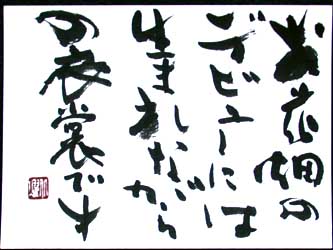 お花畑の
デビューには
生まれながら
の衣裳です